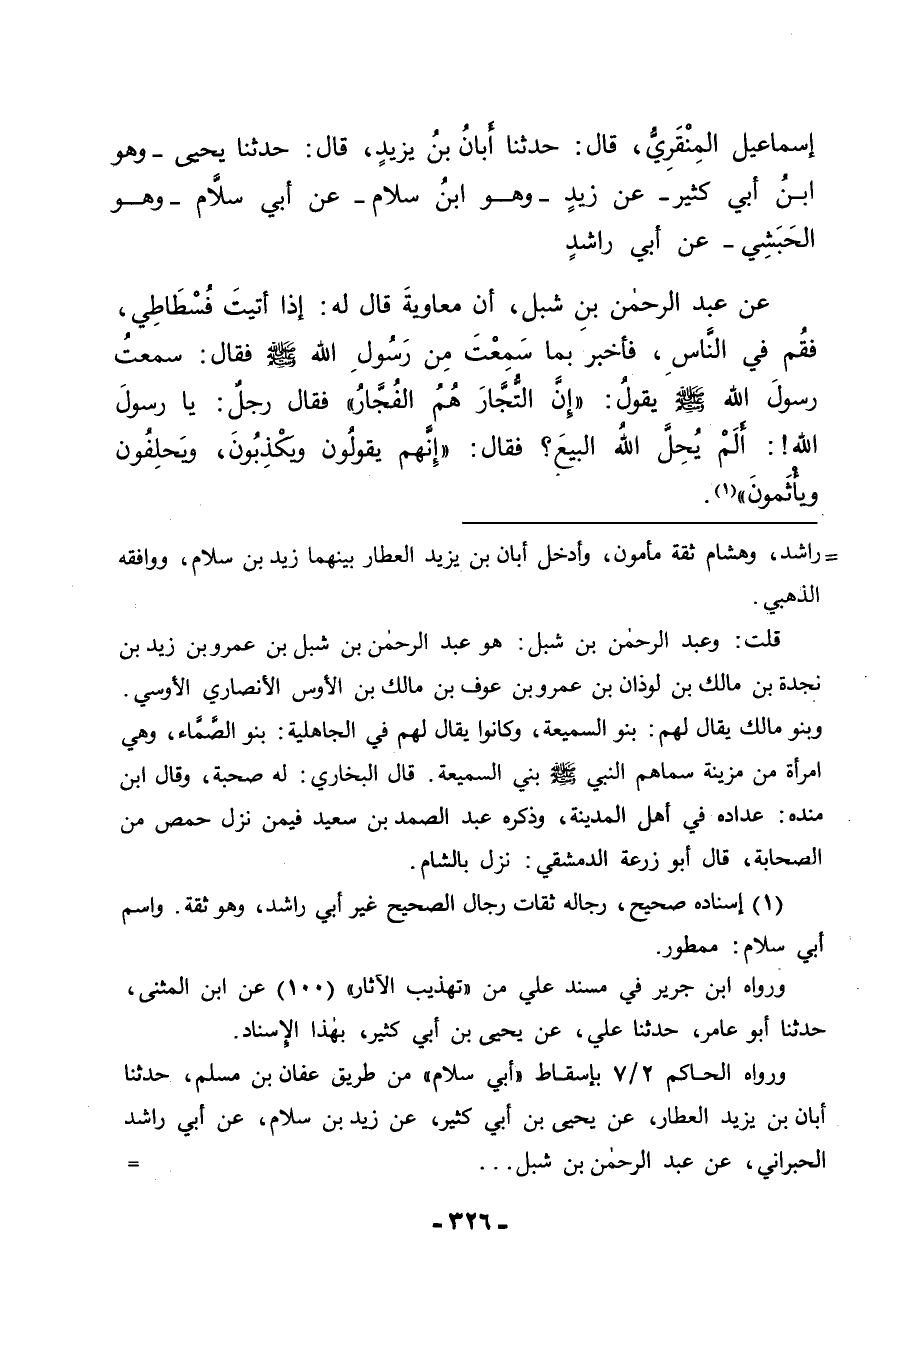 إسماعيل المِنْقَرِيُّ، قال: حدثنا أَبانُ بنُ يزيدٍ، قال: حدثنا يحيى ـ وهو
ابـنُ أبي كثير ـ عن زيدٍ ـ وهـــو ابنُ سلام ـ عن أبي سلَّام ـ وهـــو
الحَبَشِي ـ عن أبي راشدٍ
عن عبد الرحمٰن بن شبل، أن معاويةَ قال له: إذا أتيتَ فُسْطَاطِي،
فقُم في النَّاسِ، فأخبر بما سَمِعْتَ مِن رَسُولِ الله ﷺ فقال: سمعتُ
رسولَ الله ﷺ يقولُ: «إنَّ التُّجَّارَ هُمُ الفُجَّارُ» فقال رجلٌ: يا رسولَ
الله!: أَلَمْ يُحِلَّ اللهُ البيعَ؟ فقال: «إنَّهم يقولُون ويكْذِبُونَ، ويَحلِفُون
ويأْثَمونَ»(١).
= راشد، وهشام ثقة مأمون، وأدخل أبان بن يزيد العطار بينهما زيد بن سلام، ووافقه
الذهبي.
قلت: وعبد الرحمٰن بن شبل: هو عبد الرحمٰن بن شبل بن عمرو بن زيد بن
نجدة بن مالك بن لوذان بن عمرو بن عوف بن مالك بن الأوس الأنصاري الأوسي.
وبنو مالك يقال لهم: بنو السميعة، وكانوا يقال لهم في الجاهلية: بنو الصَّمَّاء، وهي
امرأة من مزينة سماهم النبي ﷺ بني السميعة. قال البخاري: له صحبة، وقال ابن
منده: عداده في أهل المدينة، وذكره عبد الصمد بن سعيد فيمن نزل حمص من
الصحابة، قال أبو زرعة الدمشقي: نزل بالشام.
(١) إسناده صحيح، رجاله ثقات رجال الصحيح غير أبي راشد، وهو ثقة. واسم
أبي سلام: ممطور.
ورواه ابن جرير في مسند علي من «تهذيب الآثار» (١٠٠) عن ابن المثنى،
حدثنا أبو عامر، حدثنا علي، عن يحيى بن أبي كثير، بهٰذا الإسناد.
ورواه الحـاكم ٧/٢ بإسقـاط «أبي سلام» من طريق عفان بن مسلم، حدثنا
أبان بن يزيد العطار، عن يحيى بن أبي كثير، عن زيد بن سلام، عن أبي راشد
الحبراني، عن عبد الرحمٰن بن شبل... =
ـ ٣٢٦ ـ